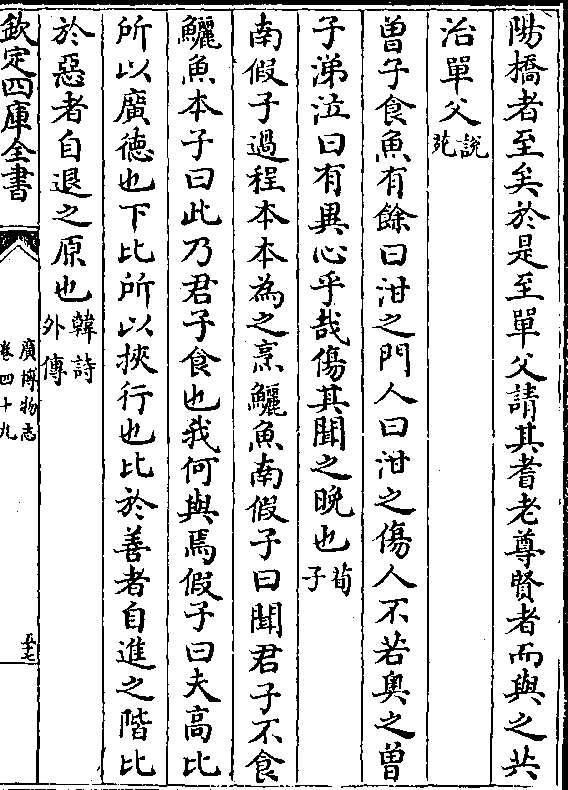 陽橋者至矣於是至單父請其耆老尊賢者而與之共
治單父說苑
曾子食魚有餘曰泔之門人曰泔之傷人不若奥之曾
子涕泣曰有異心乎哉傷其聞之晚也荀子
南假子過程本本為之烹鱺魚南假子曰聞君子不食
鱺魚本子曰此乃君子食也我何與焉假子曰夫高比
所以廣徳也下比所以挾行也比於善者自進之階比
於惡者自退之原也韓詩外傳
欽定四庫全書
廣博物志
卷四十九